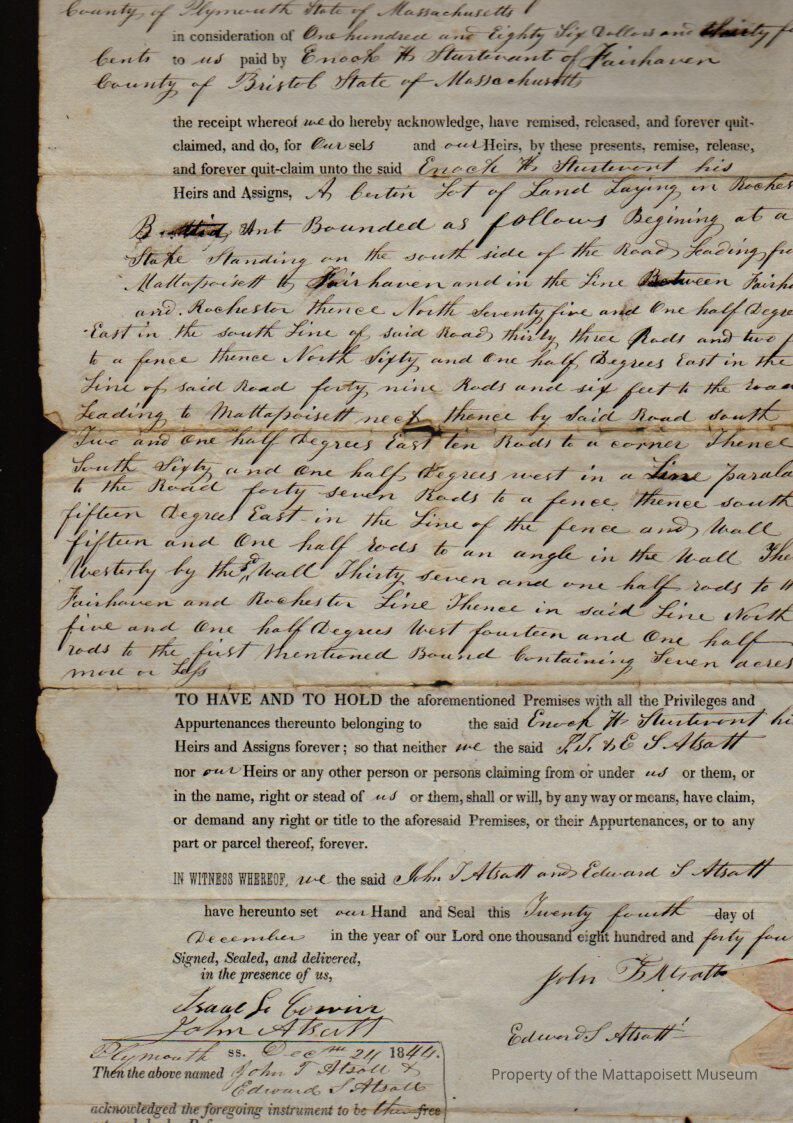 County of Plymouth State of Massachusetts
in consideration of One hundred and Eighty Six Dollars and thirty
Cents to us paid by Enoch H Sturtevant of Fairhaven
County of Bristol State of Massachusetts
the receipt whereof we do hereby acknowledge, have remised, released, and forever quit-
claimed, and do, for Our sels and our Heirs, by these presents, remise, release,
and forever quit-claim unto the said Enoch H. Sturtevant his
Heirs and Assigns, A Certin Lot of Land Laying in Roches
Ant Bounded as follows Begining at a
Stake Standing on the south side of the Road Leading
Mattapoisett to Fairhaven and in the Line Between Fairh
and Rochester thence North Seventy five and One half Degre
East in the south Line of said Road thirty three Rods and two
to a fence thence North Sixty and One half Degrees East in the
Line of said Road forty nine Rods and six feet to the Road
Leading to Mattapoisett neck thence by Said Road south
Two and One half Degrees East ten Rods to a corner Thence
South Sixty and One half degrees west in a Line parala
to the Road forty seven Rods to a fence thence south
fifteen Degrees East in the Line of the fence and Wall
fifteen and One half rods to an angle in the Wall The
Westerly by the sd Wall Thirty seven and one half rods to
Fairhaven and Rochester Line Thence in said Line North
five and One half Degrees West fourteen and One half
rods to the first Mentioned Bound Containing Seven acres
more or Less
TO HAVE AND TO HOLD the aforementioned Premises with all the Privileges and
Appurtenances thereunto belonging to the said Enoch H Sturtevant hi
Heirs and Assigns forever; so that neither we the said J.T. & E S Atsatt
nor our Heirs or any other person or persons claiming from or under us or them, or
in the name, right or stead of us or them, shall or will, by any way or means, have claim,
or demand any right or title to the aforesaid Premises, or their Appurtenances, or to any
part or parcel thereof, forever.
IN WITNESS WHEREOF, we the said John T Atsatt and Edward S Atsatt
have hereunto set our Hand and Seal this Twenty fourth day of
December in the year of our Lord one thousand eight hundred and forty fou
Signed, Sealed, and delivered,
in the presence of us,
John T Atsatt
John Atsatt
Edward S Atsatt
Plymouth ss. Decm 24 1844.
Then the above named John T Atsatt &
Edward S Atsatt
acknowledged the foregoing instrument to be their free
Property of the Mattapoisett Museum